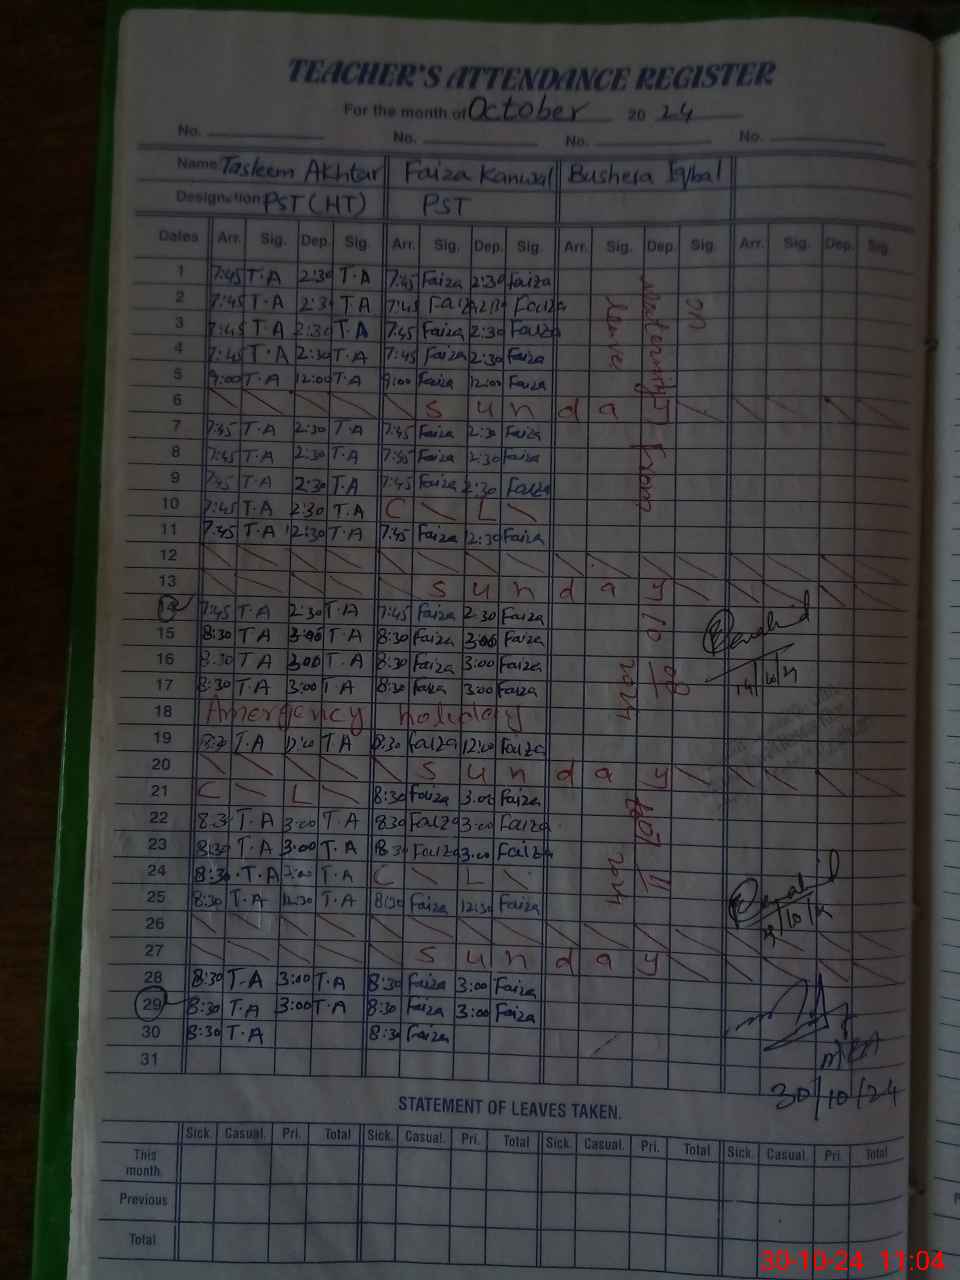 TEACHER'S ATTENDANCE REGISTER
For the month of October 2024
No. No. No. No.
Name Tasleem Akhtar Faiza Kanwal Bushera Iqbal
Designation PST (HT) PST
Dates Arr. Sig. Dep. Sig. Arr. Sig. Dep. Sig. Arr. Sig. Dep. Sig. Arr. Sig. Dep. Sig.
1 7:45 T.A 2:30 T.A 7:45 Faiza 2:30 Faiza
2 7:45 T.A 2:30 T.A 7:45 Faiza 2:30 Faiza
3 7:45 T.A 2:30 T.A 7:45 Faiza 2:30 Faiza
4 7:45 T.A 2:30 T.A 7:45 Faiza 2:30 Faiza
5 9:00 T.A 12:00 T.A 9:00 Faiza 12:00 Faiza
6 S u n d a y
7 7:45 T.A 2:30 T.A 7:45 Faiza 2:30 Faiza
8 7:45 T.A 2:30 T.A 7:45 Faiza 2:30 Faiza
9 7:45 T.A 2:30 T.A 7:45 Faiza 2:30 Faiza
10 7:45 T.A 2:30 T.A C L
11 7:45 T.A 12:30 T.A 7:45 Faiza 12:30 Faiza
12
13 S u n d a y
14 7:45 T.A 2:30 T.A 7:45 Faiza 2:30 Faiza
15 8:30 T.A 3:00 T.A 8:30 Faiza 3:00 Faiza
16 8:30 T.A 3:00 T.A 8:30 Faiza 3:00 Faiza
17 8:30 T.A 3:00 T.A 8:30 Faiza 3:00 Faiza
18 Amergency holiday
19 8:30 T.A 12:00 T.A 8:30 Faiza 12:00 Faiza
20 S u n d a y
21 C L 8:30 Faiza 3:00 Faiza
22 8:30 T.A 3:00 T.A 8:30 Faiza 3:00 Faiza
23 8:30 T.A 3:00 T.A 8:30 Faiza 3:00 Faiza
24 8:30 T.A 3:00 T.A C L
25 8:30 T.A 12:30 T.A 8:30 Faiza 12:30 Faiza
26
27 S u n d a y
28 8:30 T.A 3:00 T.A 8:30 Faiza 3:00 Faiza
29 8:30 T.A 3:00 T.A 8:30 Faiza 3:00 Faiza
30 8:30 T.A 8:30 Faiza
31
on
Maternity From 10 08 to 9 11
leave 2024 2024
14/10/24
30/10/24
STATEMENT OF LEAVES TAKEN.
Sick. Casual. Pri. Total Sick. Casual. Pri. Total Sick. Casual. Pri. Total Sick. Casual. Pri. Total
This month.
Previous
Total
30-10-24 11:04